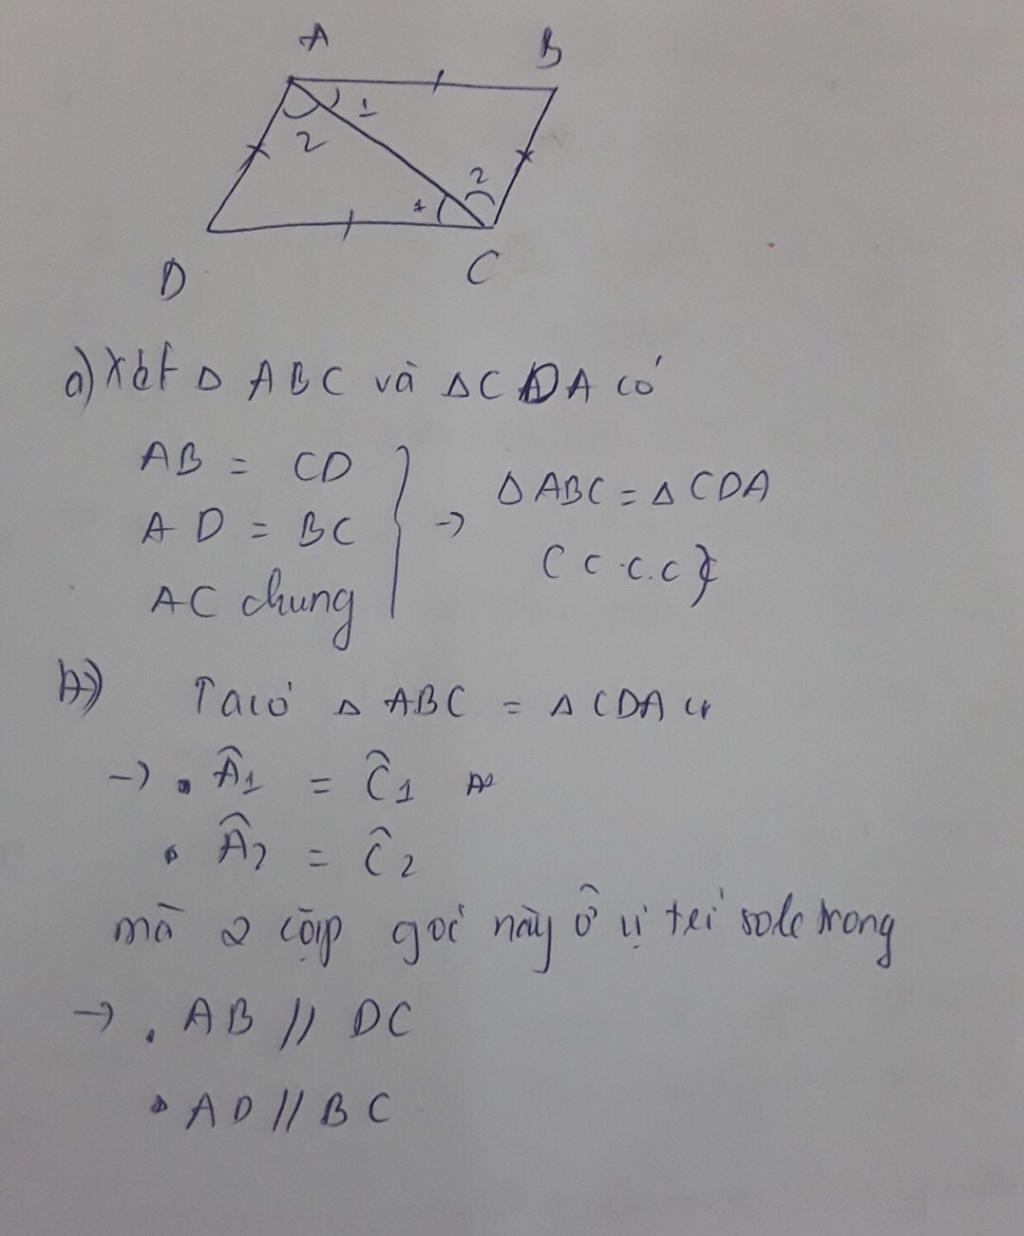 A
B
1
2
2
1
D
C
a) Xét Δ ABC và Δ CDA có
AB = CD
AD = BC
AC chung
→ Δ ABC = Δ CDA
(c.c.c)
b) Ta có Δ ABC = Δ CDA
→ . Â1 = Ĉ1
• Â2 = Ĉ2
mà 2 cặp góc này ở vị trí sole trong
→ . AB // DC
• AD // BC